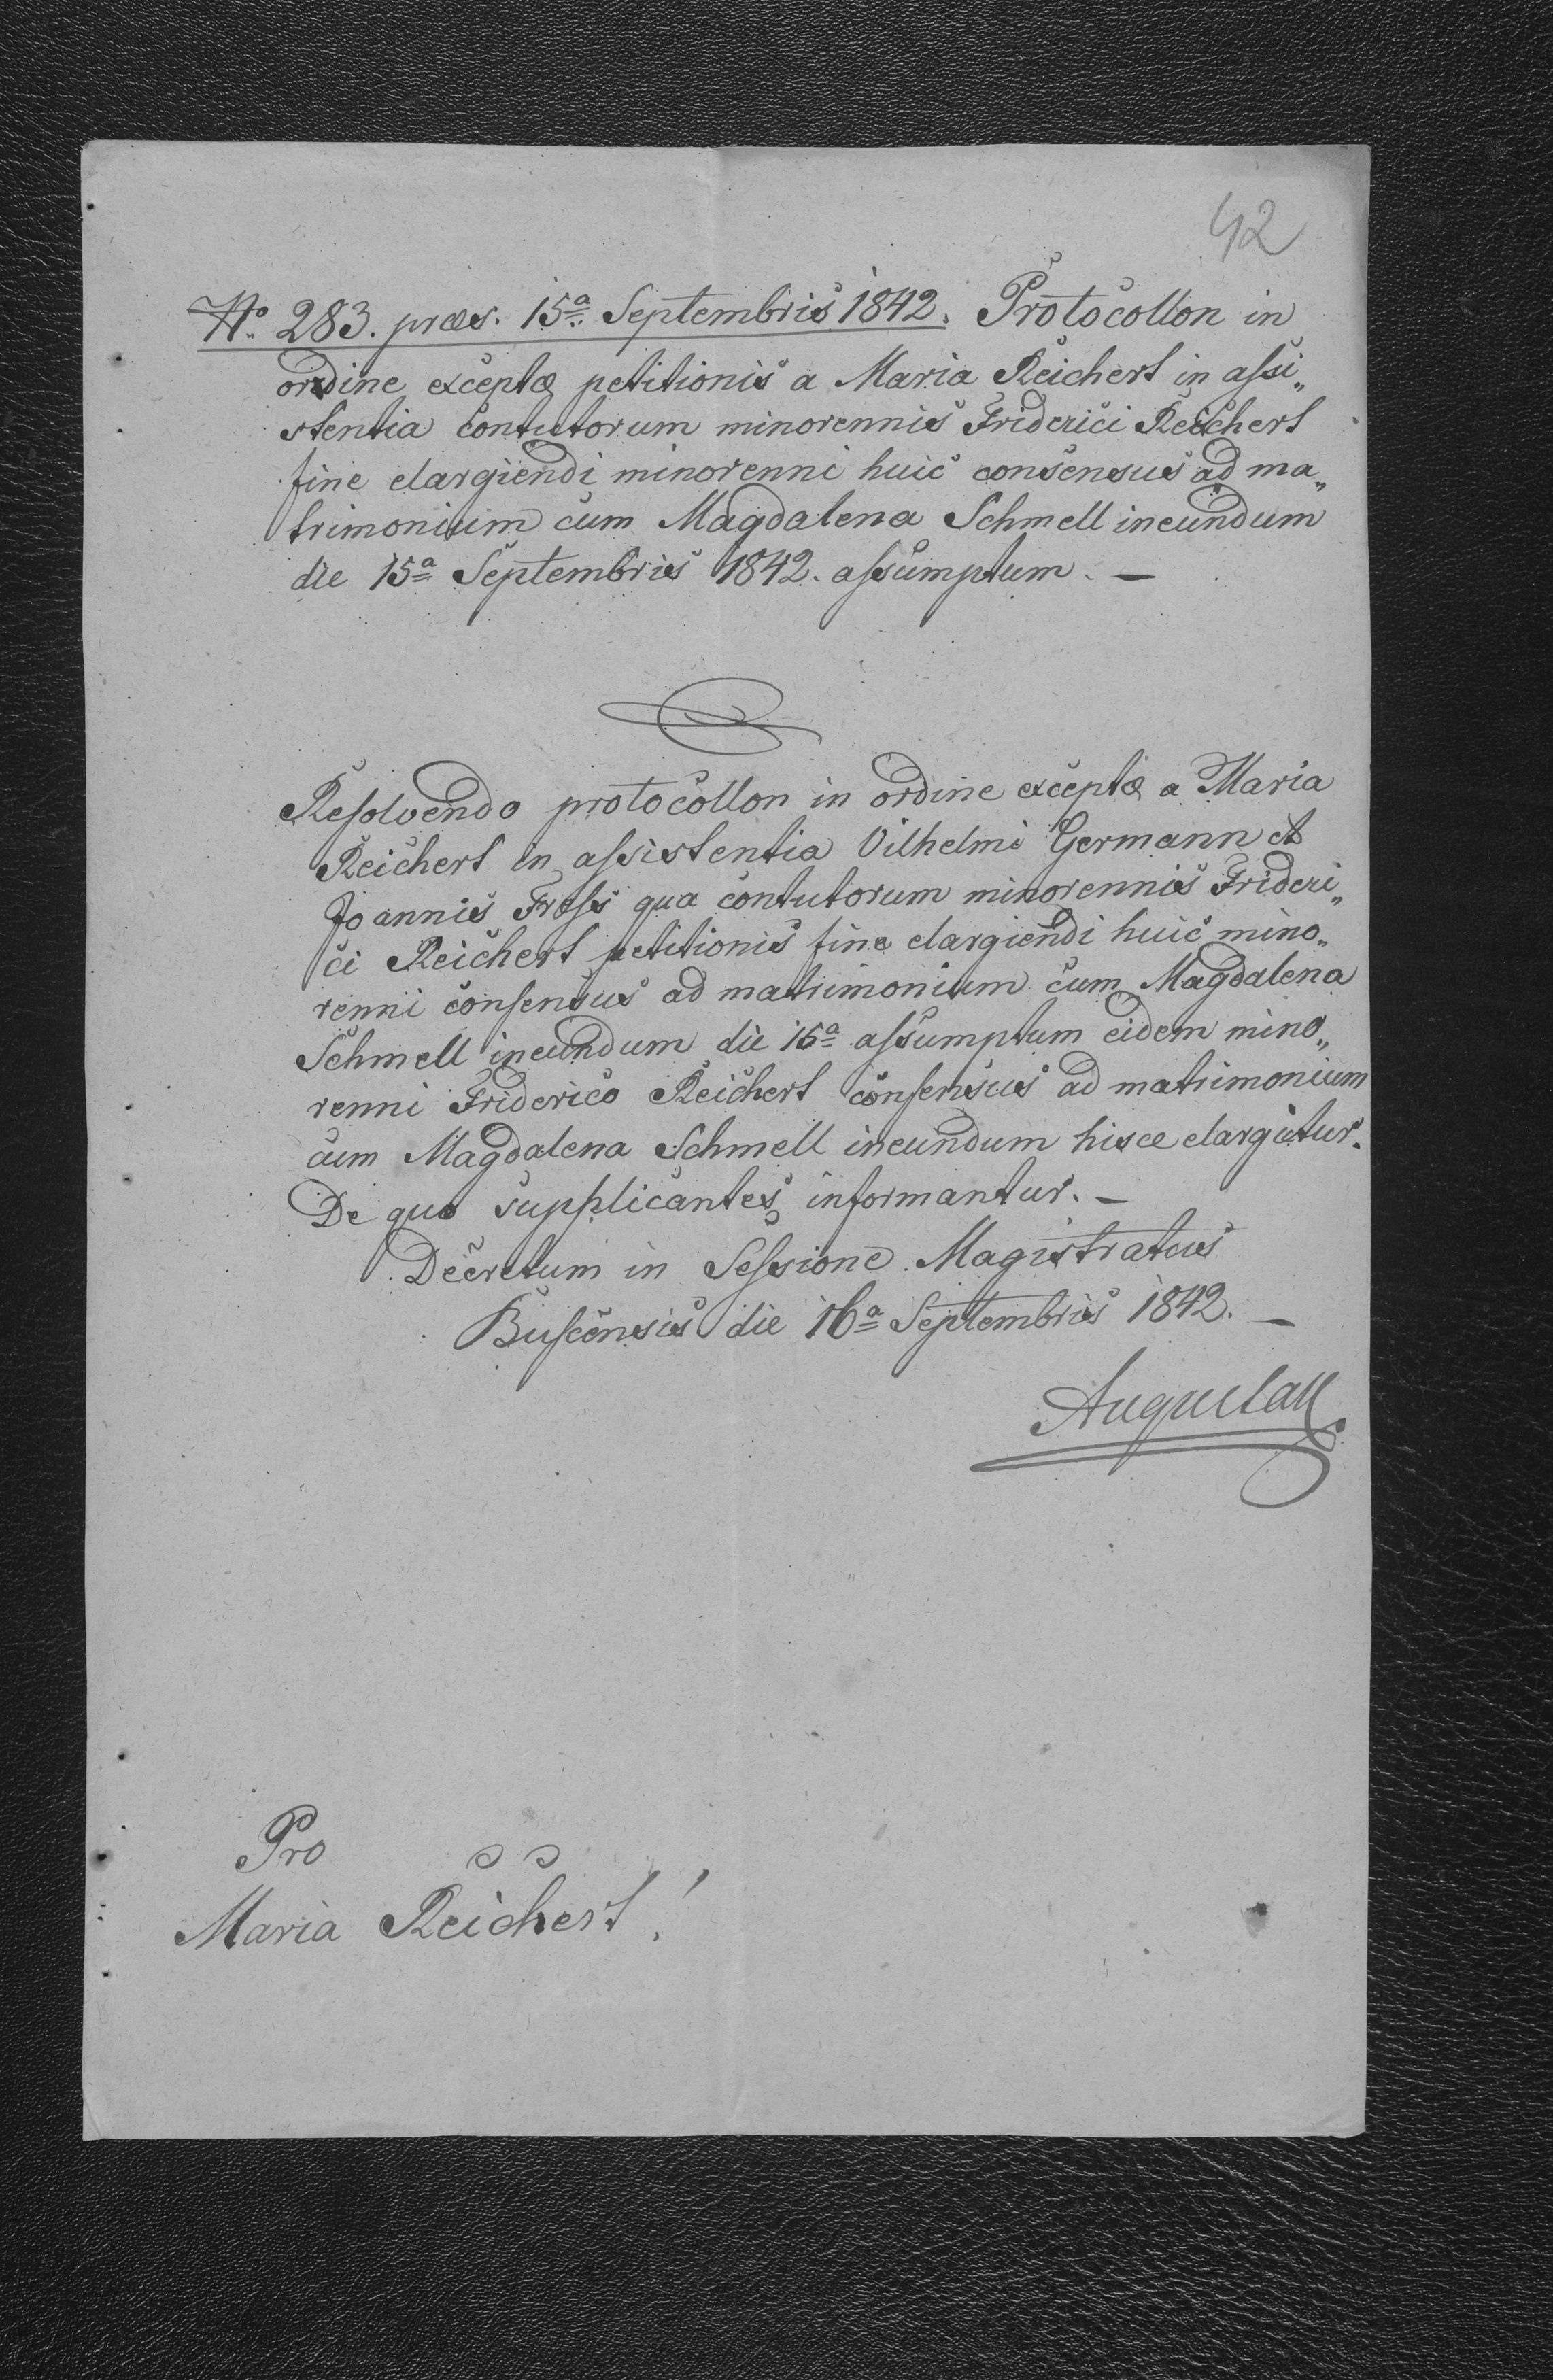 42
No 283. præs. 15a Septembris 1842. Protocollon in
ordine exceptæ petitionis a Maria Reichert in assi„
stentia contutorum minorennis Friderici Reichert
fine elargiendi minorenni huic consensus ad ma„
trimonium cum Magdalena Schmell ineundum
die 15a Septembris 1842. assumptum. —
Resolvendo protocollon in ordine exceptæ a Maria
Reichert in assistentia Vilhelmi Germann et
Joannis qua contutorum minorennis Frideri„
ci Reichert petitionis fine elargiendi huic mino„
renni consensus ad matrimonium cum Magdalena
Schmell ineundum die 15a assumptum eidem mino„
renni Friderico Reichert consensus ad matrimonium
cum Magdalena Schmell ineundum hisce elargitur.
De quo supplicantes informantur. —
Decretum in Sessione Magistratus
Buscensis die 16a Septembris 1842. —
Pro
Maria Reichert!